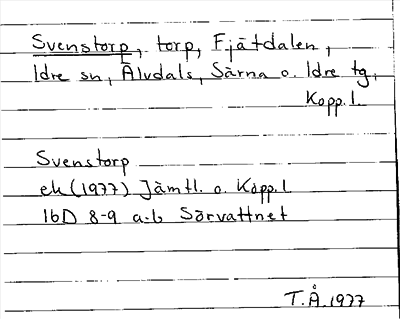 Svenstorp, torp, Fjätdalen,
Idre sn, Älvdals, Särna o. Idre tg,
Kopp.l.
Svenstorp
ek (1977) Jämtl. o. Kopp.l
16D 8-9 a-b Sörvattnet
T.Å. 1977